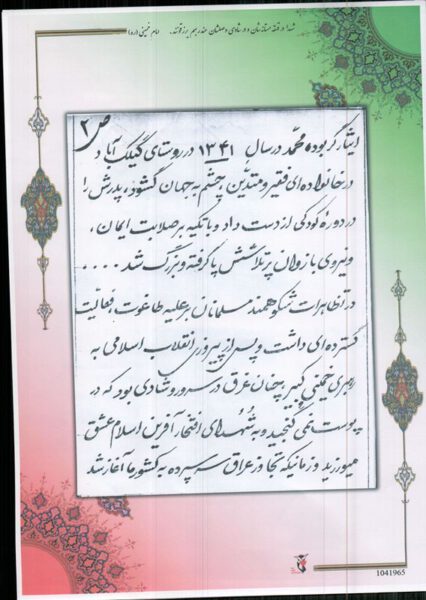 شهدا در قهقهه مستانه‌شان و در شادی وصولشان عند ربهم یرزقونند. امام خمینی (ره)
ص ۲
ایثارگر بوده محمّد در سال ۱۳۴۱ در روستای گینک آباد
در خانواده ای فقیر و متدیّن چشم به جهان گشود، پدرش را
در دورهٔ کودکی از دست داد و با تکیه بر صلابت ایمان،
و نیروی بازوان پر تلاشش پا گرفته و بزرگ شد ....
در تظاهرات شکوهمند مسلمانان بر علیه طاغوت، فعالیت
گسترده ای داشت و پس از پیروزی انقلاب اسلامی به
رهبری خمینی کبیر چنان غرق در سرور و شادی بود که در
پوست نمی گنجید و به شُهدای افتخار آفرین اسلام عشق
میورزید و زمانیکه تجاوز عراق سر سپرده به کشور ما آغاز شد
1041965